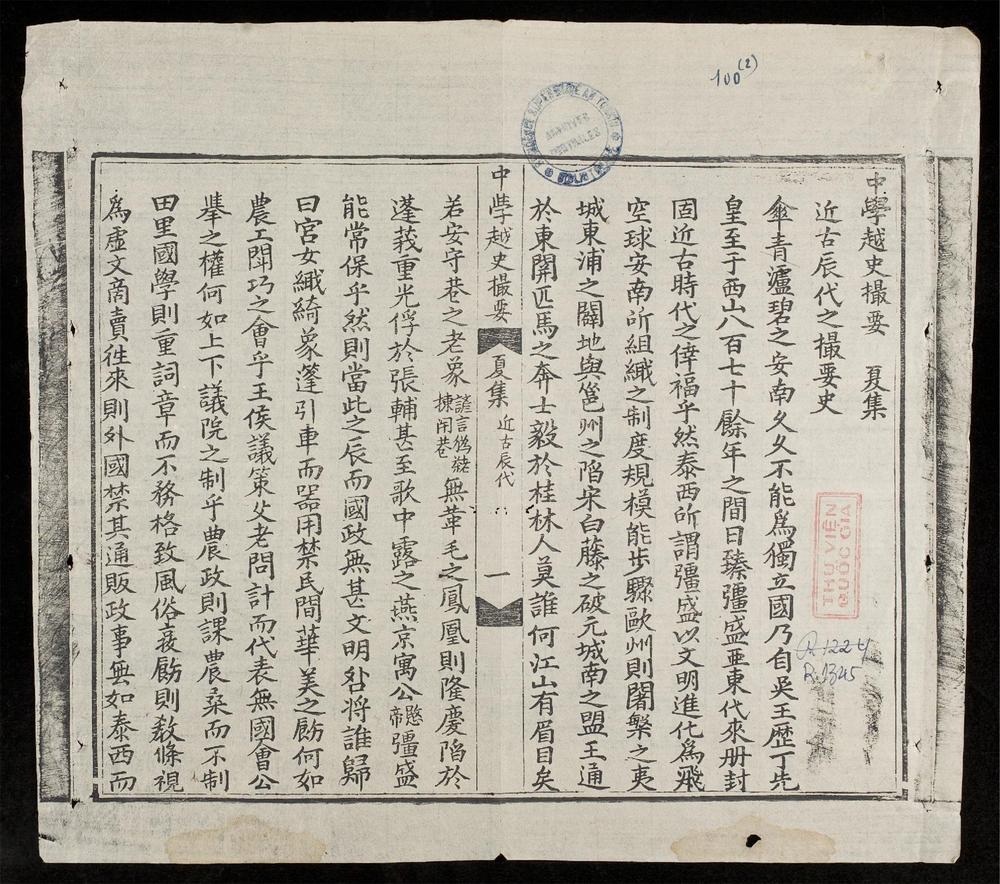 100(2)
中學越史撮要 夏集
近古辰代之撮要史
傘青瀘碧之安南久久不能為獨立國乃自吳王歷丁先
皇至于西山八百七十餘年之間日臻彊盛亜東代來册封
固近古時代之倖福乎然泰西所謂彊盛以文明進化為飛
空球安南所組織之制度規模能步驟歐州則闍槃之夷
城東浦之闢地與邕州之陷宋白藤之破元城南之盟王通
於東關匹馬之奔士毅於桂林人莫誰何江山有眉目矣
中學越史撮要 夏集 近古辰代 一
若安守巷之老象諺言偽𤞦揀闲巷無革毛之鳳凰則隆慶陷於
蓬莪重光俘於張輔甚至歌中露之燕京寓公愍帝彊盛
能常保乎然則當此之辰而國政無甚文明咎將誰歸
曰宮女織綺象蓬引車而器用禁民間華美之飭何如
農工聞巧之會乎王侯議策父老問計而代表無國會公
擧之權何如上下議院之制乎農政則課農桑而不制
田里國學則重詞章而不務格致風俗衰飭則教條視
為虛文商賣徃來則外國禁其通販政事無如泰西而
THƯ VIỆN
QUỐC GIA
R.1224
R.1345